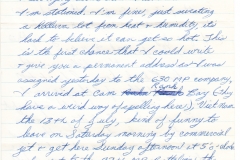 I'm stateside. I'm fine, just sweating
a lot from heat & humidity, its
hard to believe it can get so hot. This
is the first chance that I could write
& give you a permanent address as I was
assigned yesterday to the 630 MP company,
I arrived at Cam Rahn Bay (They
have a weird way of spelling here), Viet Nam
the 13th of July, kind of funny, to
leave on Saturday morning by commercial
jet & get here Sunday afternoon at 5 o'clock